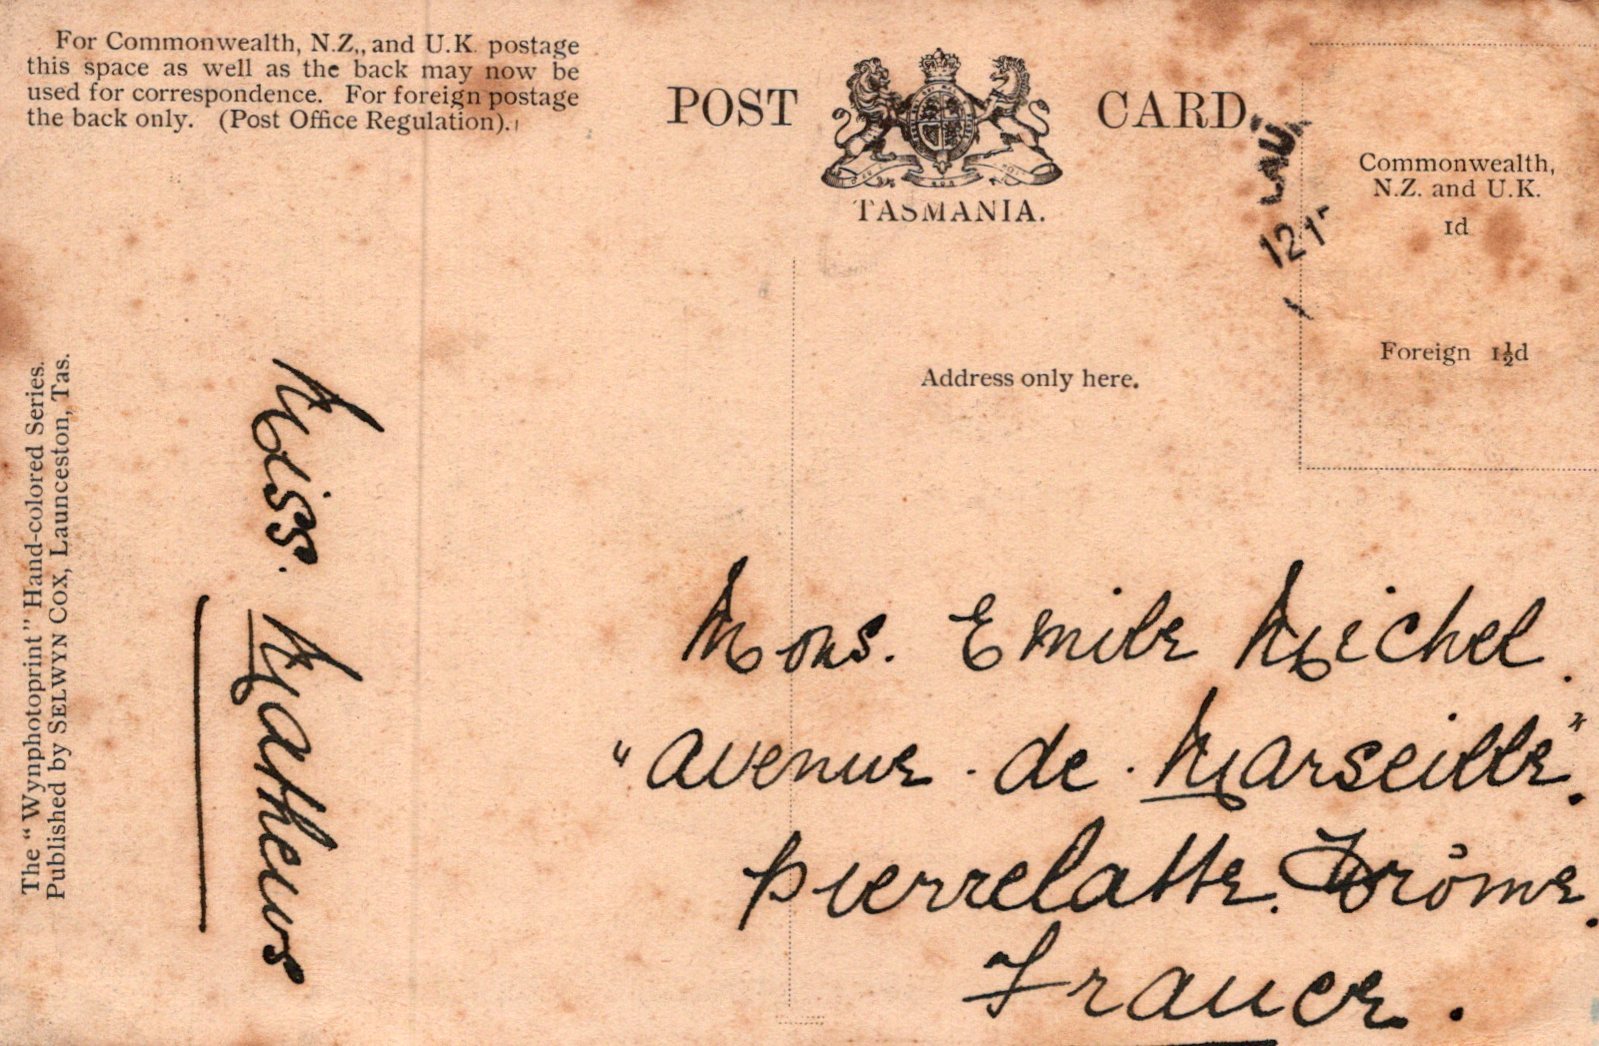 For Commonwealth, N.Z., and U.K. postage
this space as well as the back may now be
used for correspondence. For foreign postage
the back only. (Post Office Regulation).
POST CARD
TASMANIA.
LAU
121
Commonwealth,
N.Z. and U.K.
1d
Foreign 1½d
Address only here.
The "Wynphotoprint" Hand-colored Series.
Published by SELWYN COX, Launceston, Tas.
Miss. Mathews
Mons. Emile Michel.
"avenue . de . Marseille".
pierrelatte. Drôme.
France.